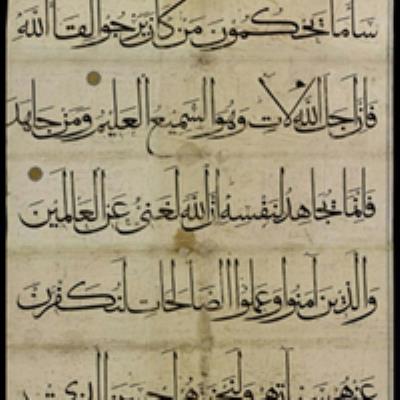 ساما تحكمون من كان يرجوا لقا الله
فان اجل الله لات وهو السميع العليم ومن جاهد
فانما يجاهد لنفسه ان الله لغني عن العالمين
والذين امنوا وعملوا الصالحات لنكفرن
عنهم سياتهم ولنجزينهم احسن الذي